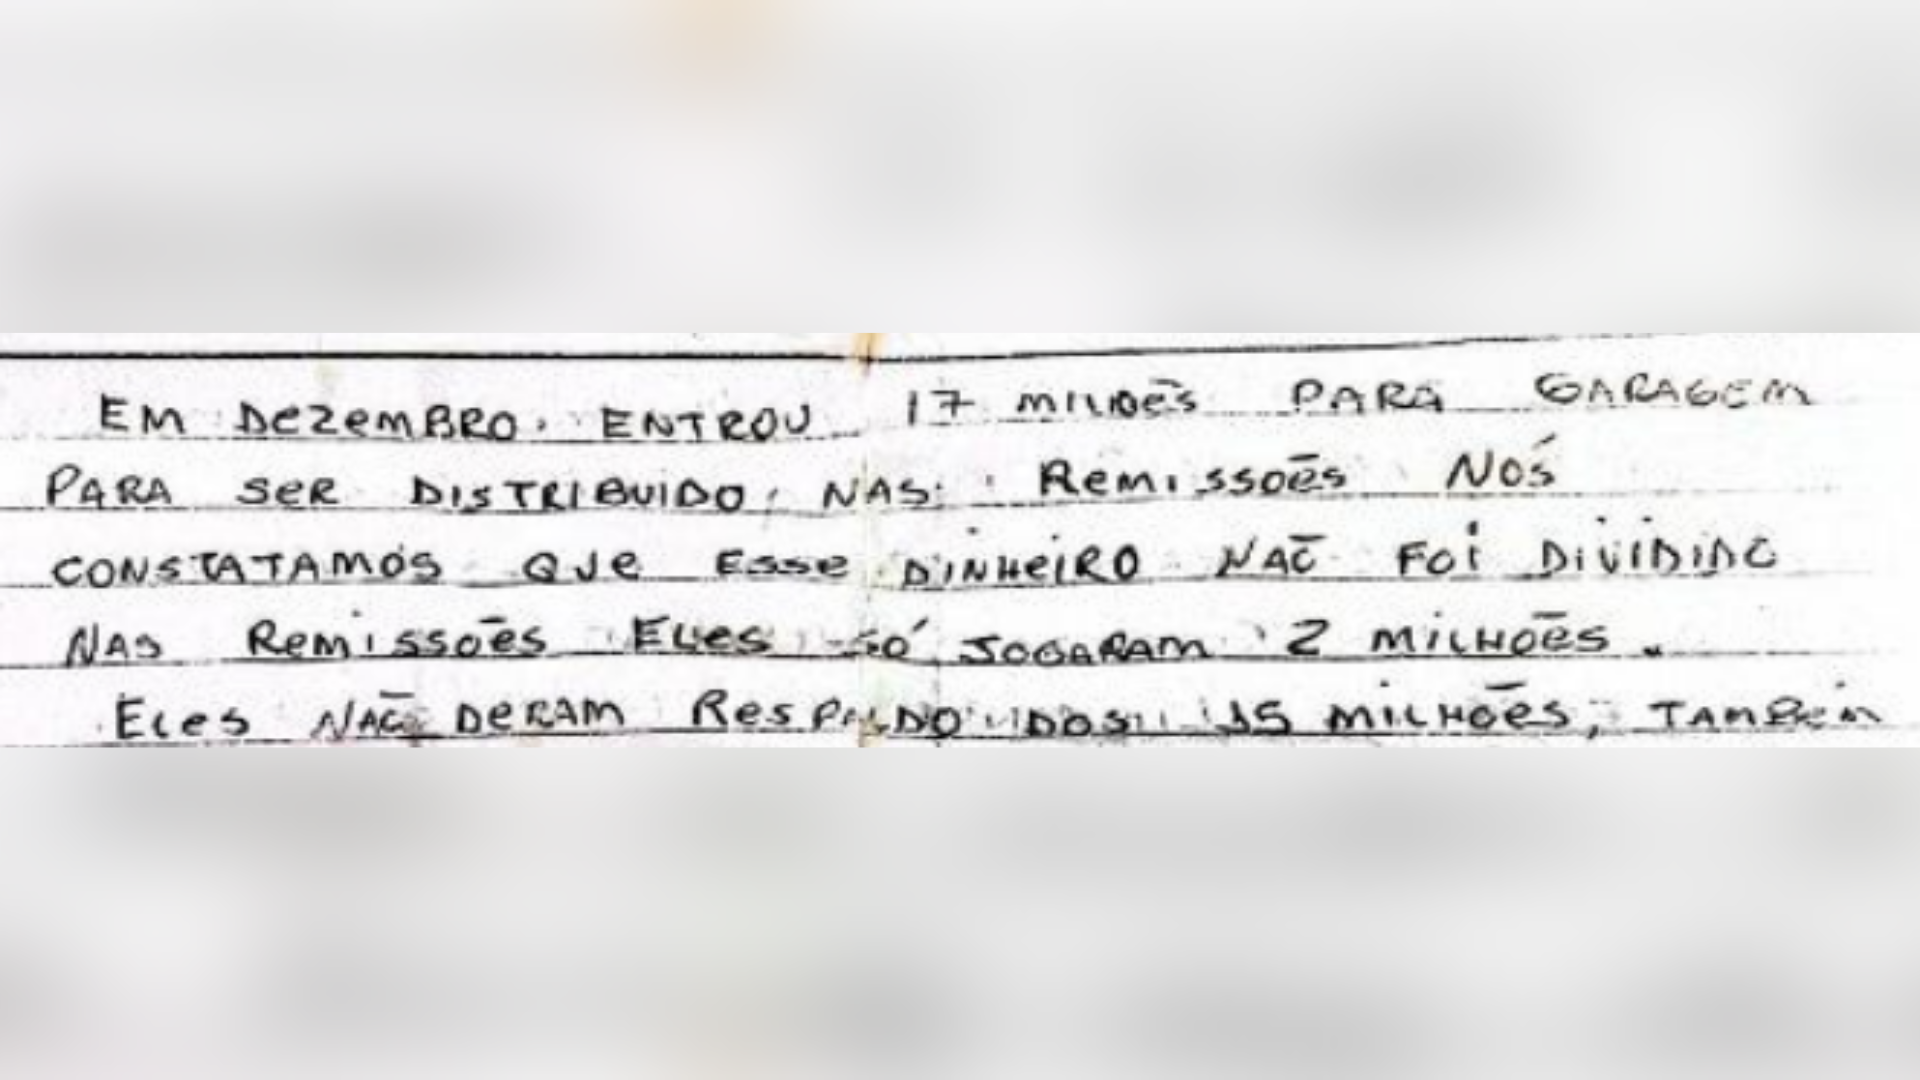 EM DEZEMBRO. ENTROU 17 MILHÕES PARA GARAGEM
PARA SER DISTRIBUIDO, NAS REMISSOES NÓS
CONSTATAMOS QUE ESSE DINHEIRO NÃO FOI DIVIDIDO
NAS REMISSOES ELES SÓ JOGARAM 2 MILHÕES.
ELES NÃO DERAM RESPALDO DOS 15 MILHÕES, TAMBÉM